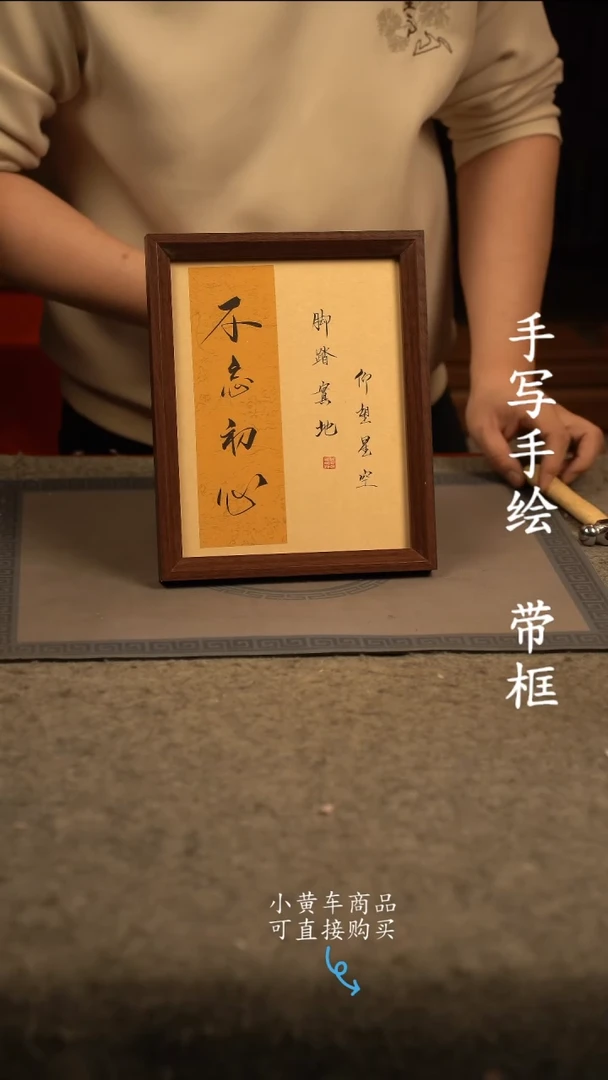 不忘初心
仰望星空
脚踏實地
手写手绘 带框
小黄车商品
可直接购买